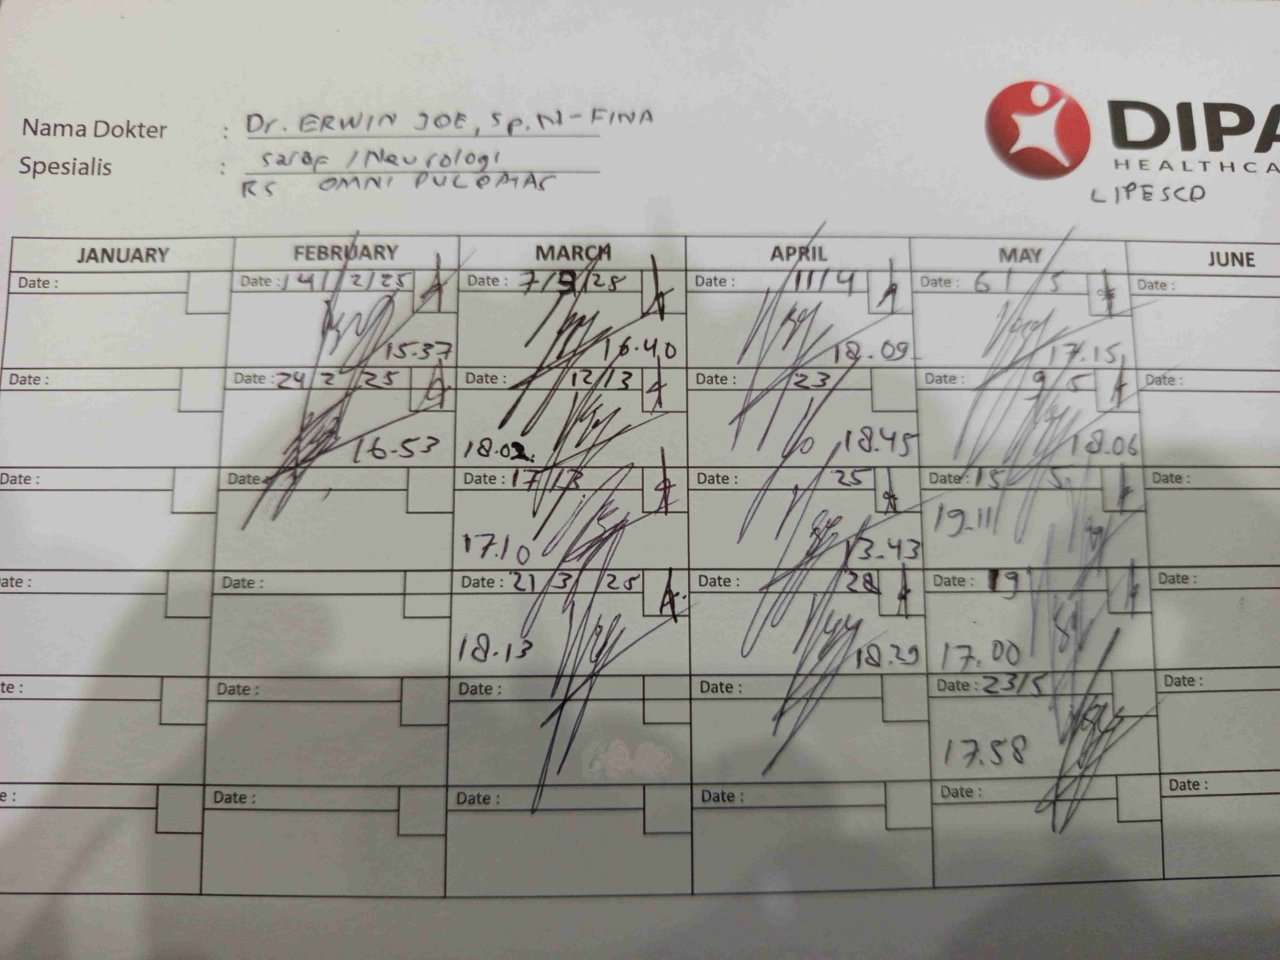 Nama Dokter : Dr. ERWIN JOE, Sp.N - FINA
Spesialis : saraf / Neurologi
RS OMNI PULOMAS
DIPA
HEALTHCA
LIPESCO
JANUARY FEBRUARY MARCH APRIL MAY JUNE
Date : Date : 14/2/25 Date : 7/3/25 Date : 11/4 Date : 6/5 Date :
15.37 16.40 18.09 17.15
Date : Date : 24 2 25 Date : 12/3 Date : 23 Date : 9 5 Date :
16.53 18.02 18.45 18.06
Date : Date Date : 17/3 Date : 25 Date : 15 5 Date :
17.10 13.43 19.11
ate : Date : Date : 21 3 25 Date : 28 Date : 19 Date :
18.13 18.29 17.00
te : Date : Date : Date : Date : 23/5 Date :
17.58
e : Date : Date : Date : Date : Date :